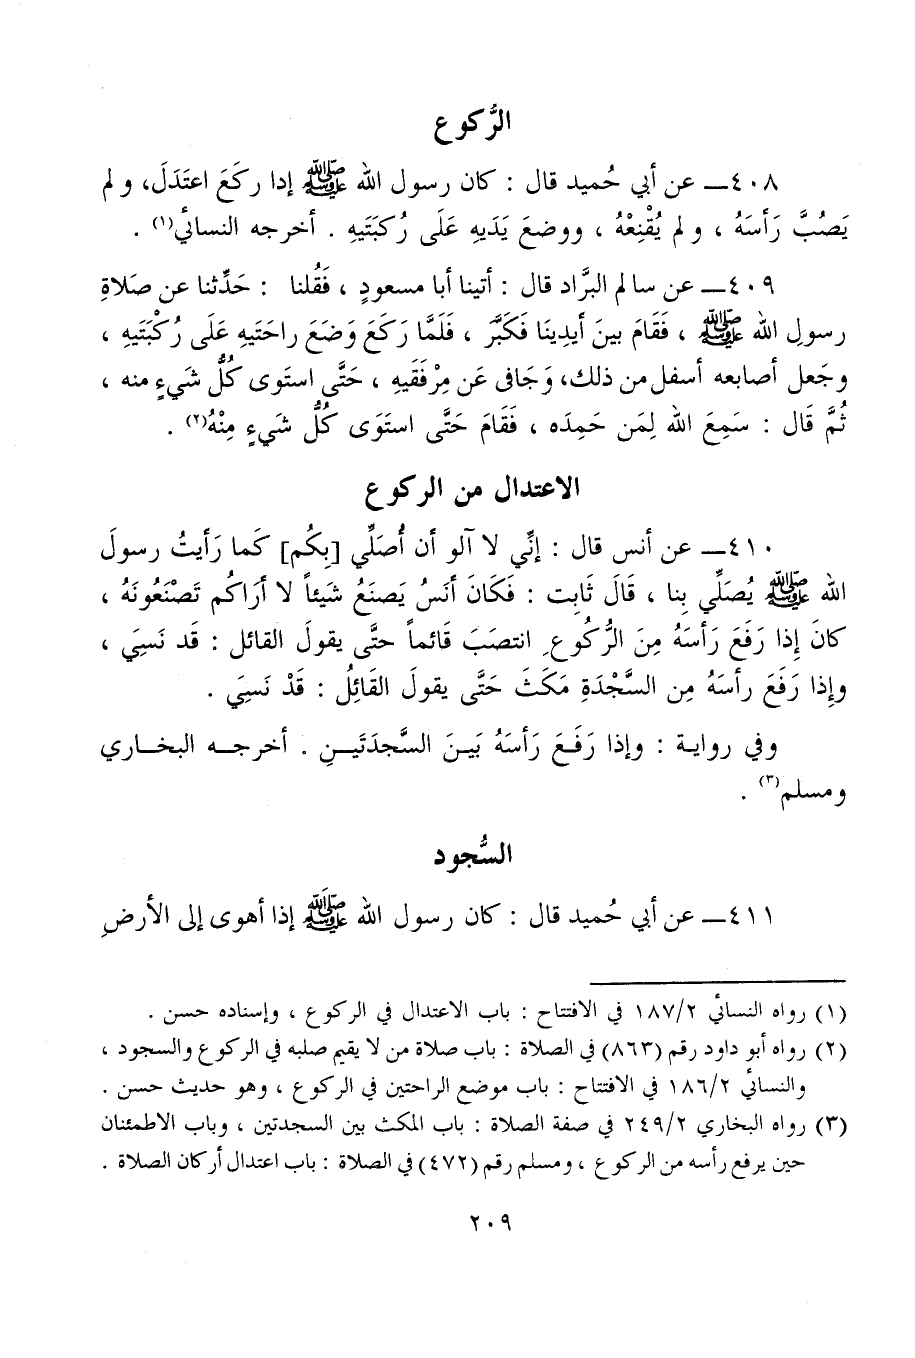 الرُّكوع
٤٠٨ــ عن أبي حُميد قال : كان رسول الله ﷺ إدا ركَعَ اعتَدَلَ، ولم
يَصُبَّ رَأسَهُ ، ولم يُقْنِعْهُ ، ووضعَ يَدَيهِ عَلَى رُكبَتَيهِ . أخرجه النسائي(١) .
٤٠٩ــ عن سالم البرَّاد قال : أتينا أبا مسعودٍ ، فَقُلنا : حَدِّثنا عن صَلاةِ
رسولِ الله ﷺ ، فَقَامَ بينَ أيدِينَا فَكَبَّرَ ، فَلَمَّا رَكَعَ وَضَعَ راحَتَيهِ عَلَى رُكْبَتَيهِ ،
وجَعل أصابعه أسفل من ذلك، وَجَافى عَن مِرْفَقَيهِ ، حَتَّى استَوى كُلُّ شَيءٍ منه ،
ثُمَّ قَال : سَمِعَ الله لِمَن حَمِدَه ، فَقَامَ حَتَّى استَوَى كُلُّ شَيءٍ مِنْهُ(٢) .
الاعتدال من الركوع
٤١٠ــ عن أنس قال : إنِّي لا آلو أن أُصَلِّي [بِكُم] كَما رَأيتُ رسولَ
الله ﷺ يُصَلِّي بِنا ، قَالَ ثَابت : فَكَانَ أنَسُ يَصنَعُ شَيئاً لا أرَاكُم تَصْنَعُونَهُ ،
كانَ إِذا رَفَعَ رَأسَهُ مِنَ الرُّكُوعِ انتصَبَ قَائماً حتَّى يقولَ القائل : قَد نَسِيَ ،
وإِذا رَفَعَ رأسَهُ مِن السَّجْدَةِ مَكَثَ حَتَّى يقولَ القَائِلُ : قَدْ نَسِيَ .
وفي رواية : وإذا رَفَعَ رَأسَهُ بَينَ السَّجدَتَينِ . أخرجه البخاري
ومسلم(٣) .
السُّجود
٤١١ــ عن أبي حُميد قال : كان رسول الله ﷺ إذا أهوى إلى الأرضِ
(١) رواه النسائي ١٨٧/٢ في الافتتاح : باب الاعتدال في الركوع ، وإسناده حسن .
(٢) رواه أبو داود رقم (٨٦٣) في الصلاة : باب صلاة من لا يقيم صلبه في الركوع والسجود ،
والنسائي ١٨٦/٢ في الافتتاح : باب موضع الراحتين في الركوع ، وهو حديث حسن .
(٣) رواه البخاري ٢٤٩/٢ في صفة الصلاة : باب المكث بين السجدتين ، وباب الاطمئنان
حين يرفع رأسه من الركوع ، ومسلم رقم (٤٧٢) في الصلاة : باب اعتدال أركان الصلاة .
٢٠٩